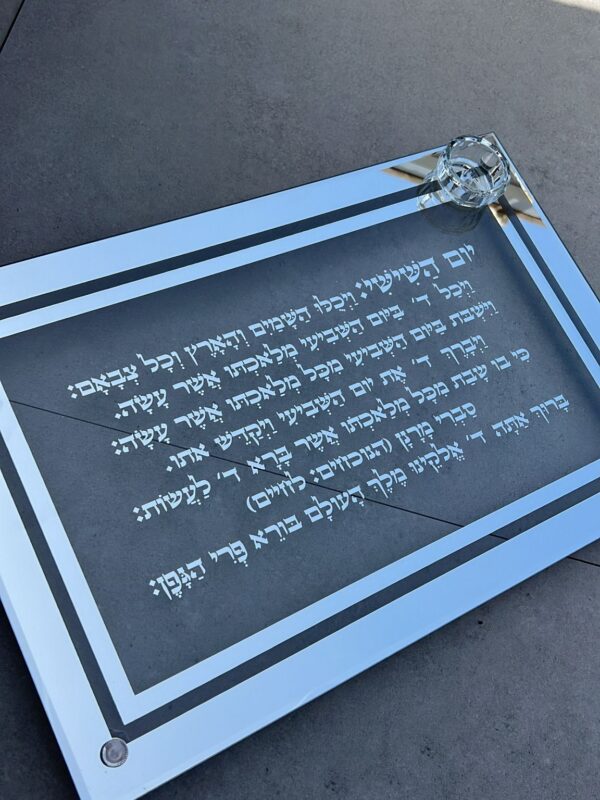 יוֹם הַשִּׁישִּׁי: וַיְכֻלּוּ הַשָּׁמַיִם וְהָאָרֶץ וְכָל צְבָאָם:
וַיְכַל ד׳ בַּיּוֹם הַשְּׁבִיעִי מְלַאכְתּוֹ אֲשֶׁר עָשָׂה.
וַיִּשְׁבֹּת בַּיּוֹם הַשְּׁבִיעִי מִכָּל מְלַאכְתּוֹ אֲשֶׁר עָשָׂה:
וַיְבָרֶךְ ד׳ אֶת יוֹם הַשְּׁבִיעִי וַיְקַדֵּשׁ אֹתוֹ.
כִּי בוֹ שָׁבַת מִכָּל מְלַאכְתּוֹ אֲשֶׁר בָּרָא ד׳ לַעֲשׂוֹת:
סַבְרִי מָרָנָן (הנוכחים: לחיים)
בָּרוּךְ אַתָּה ד׳ אֱלֹקֵינוּ מֶלֶךְ הָעוֹלָם בּוֹרֵא פְּרִי הַגָּפֶן: